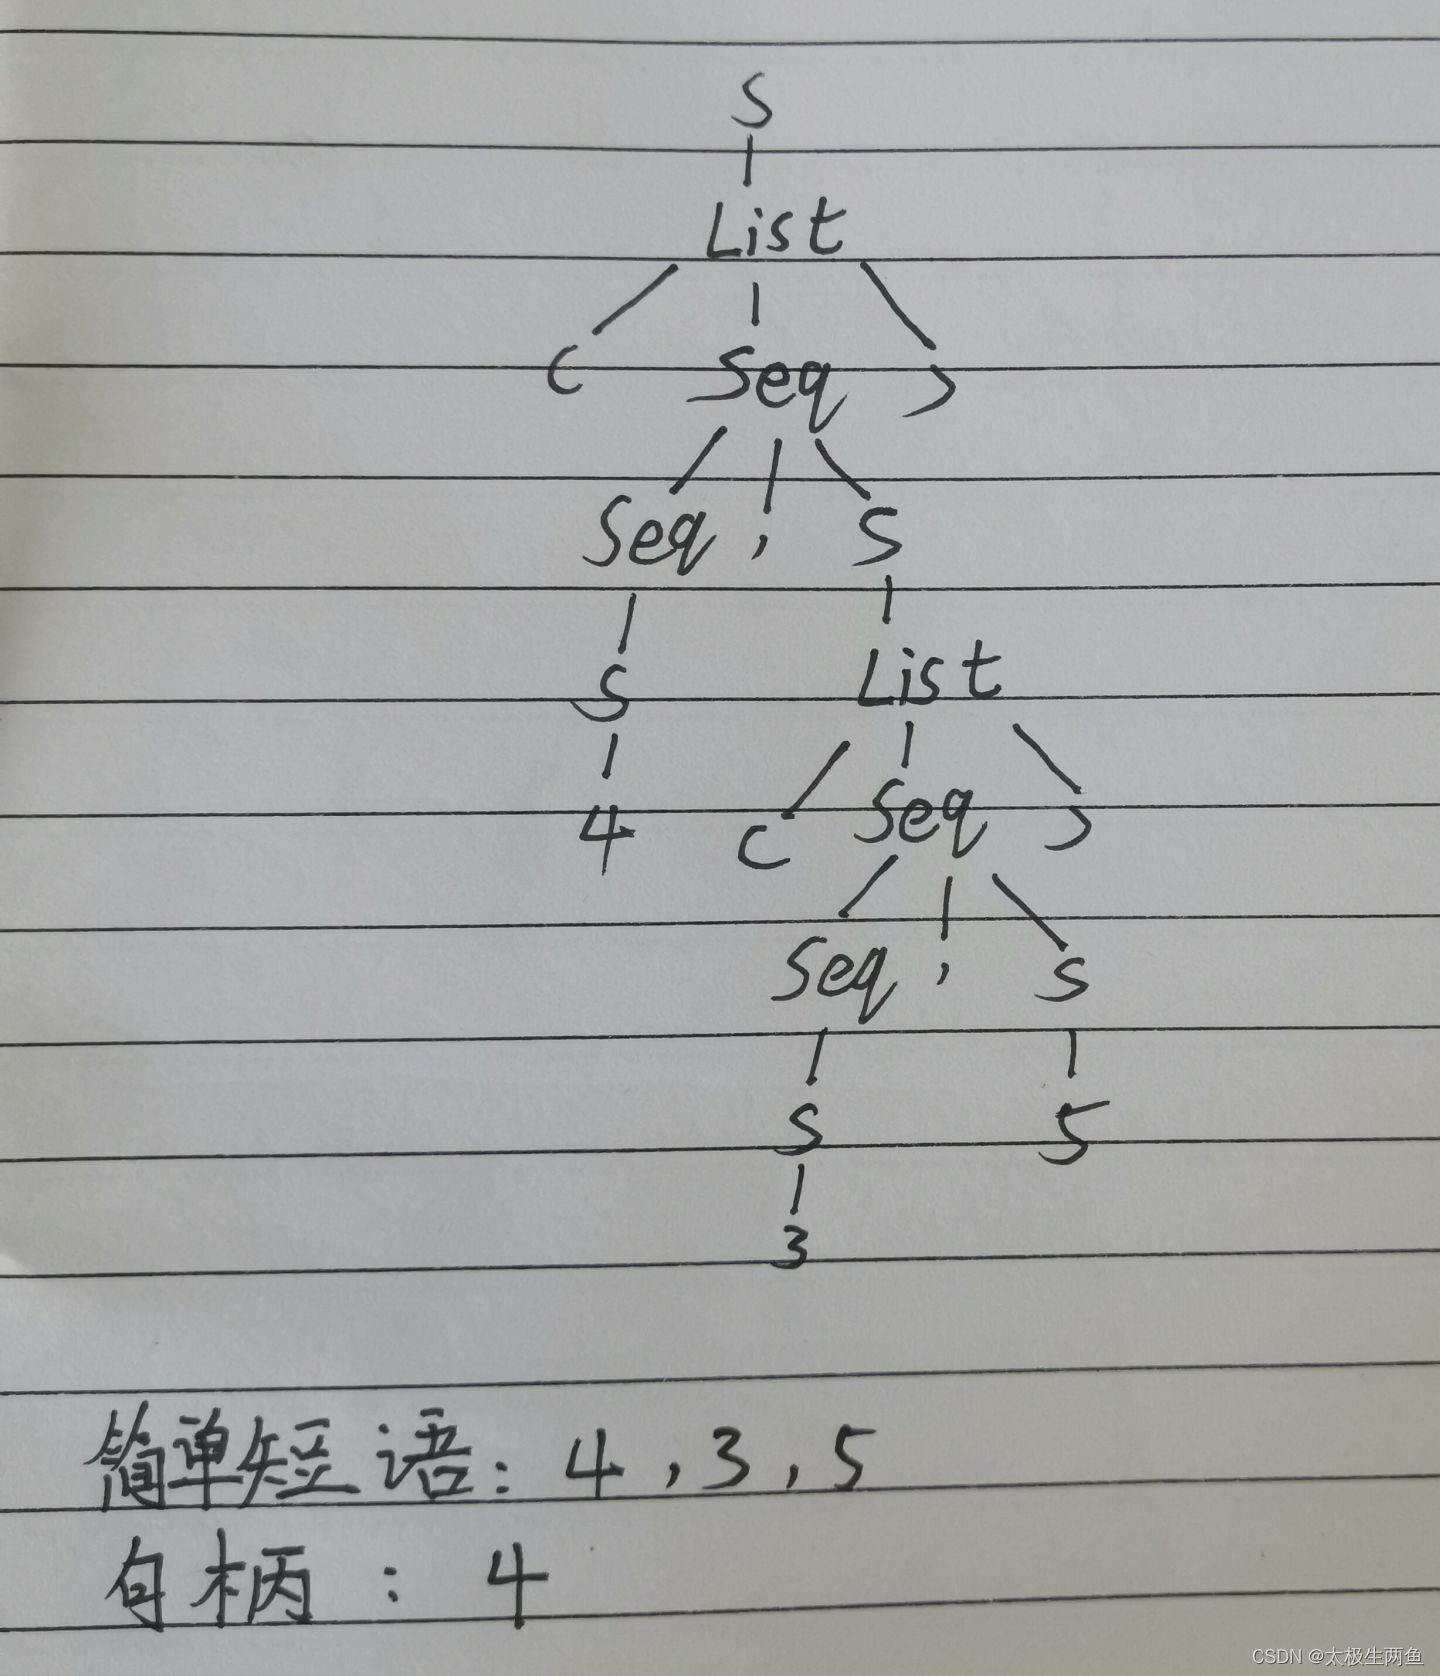 S
List
( Seq )
Seq , S
S List
4 ( Seq )
Seq , S
S 5
3
简单短语: 4 , 3 , 5
句柄 : 4
CSDN @太极生两鱼